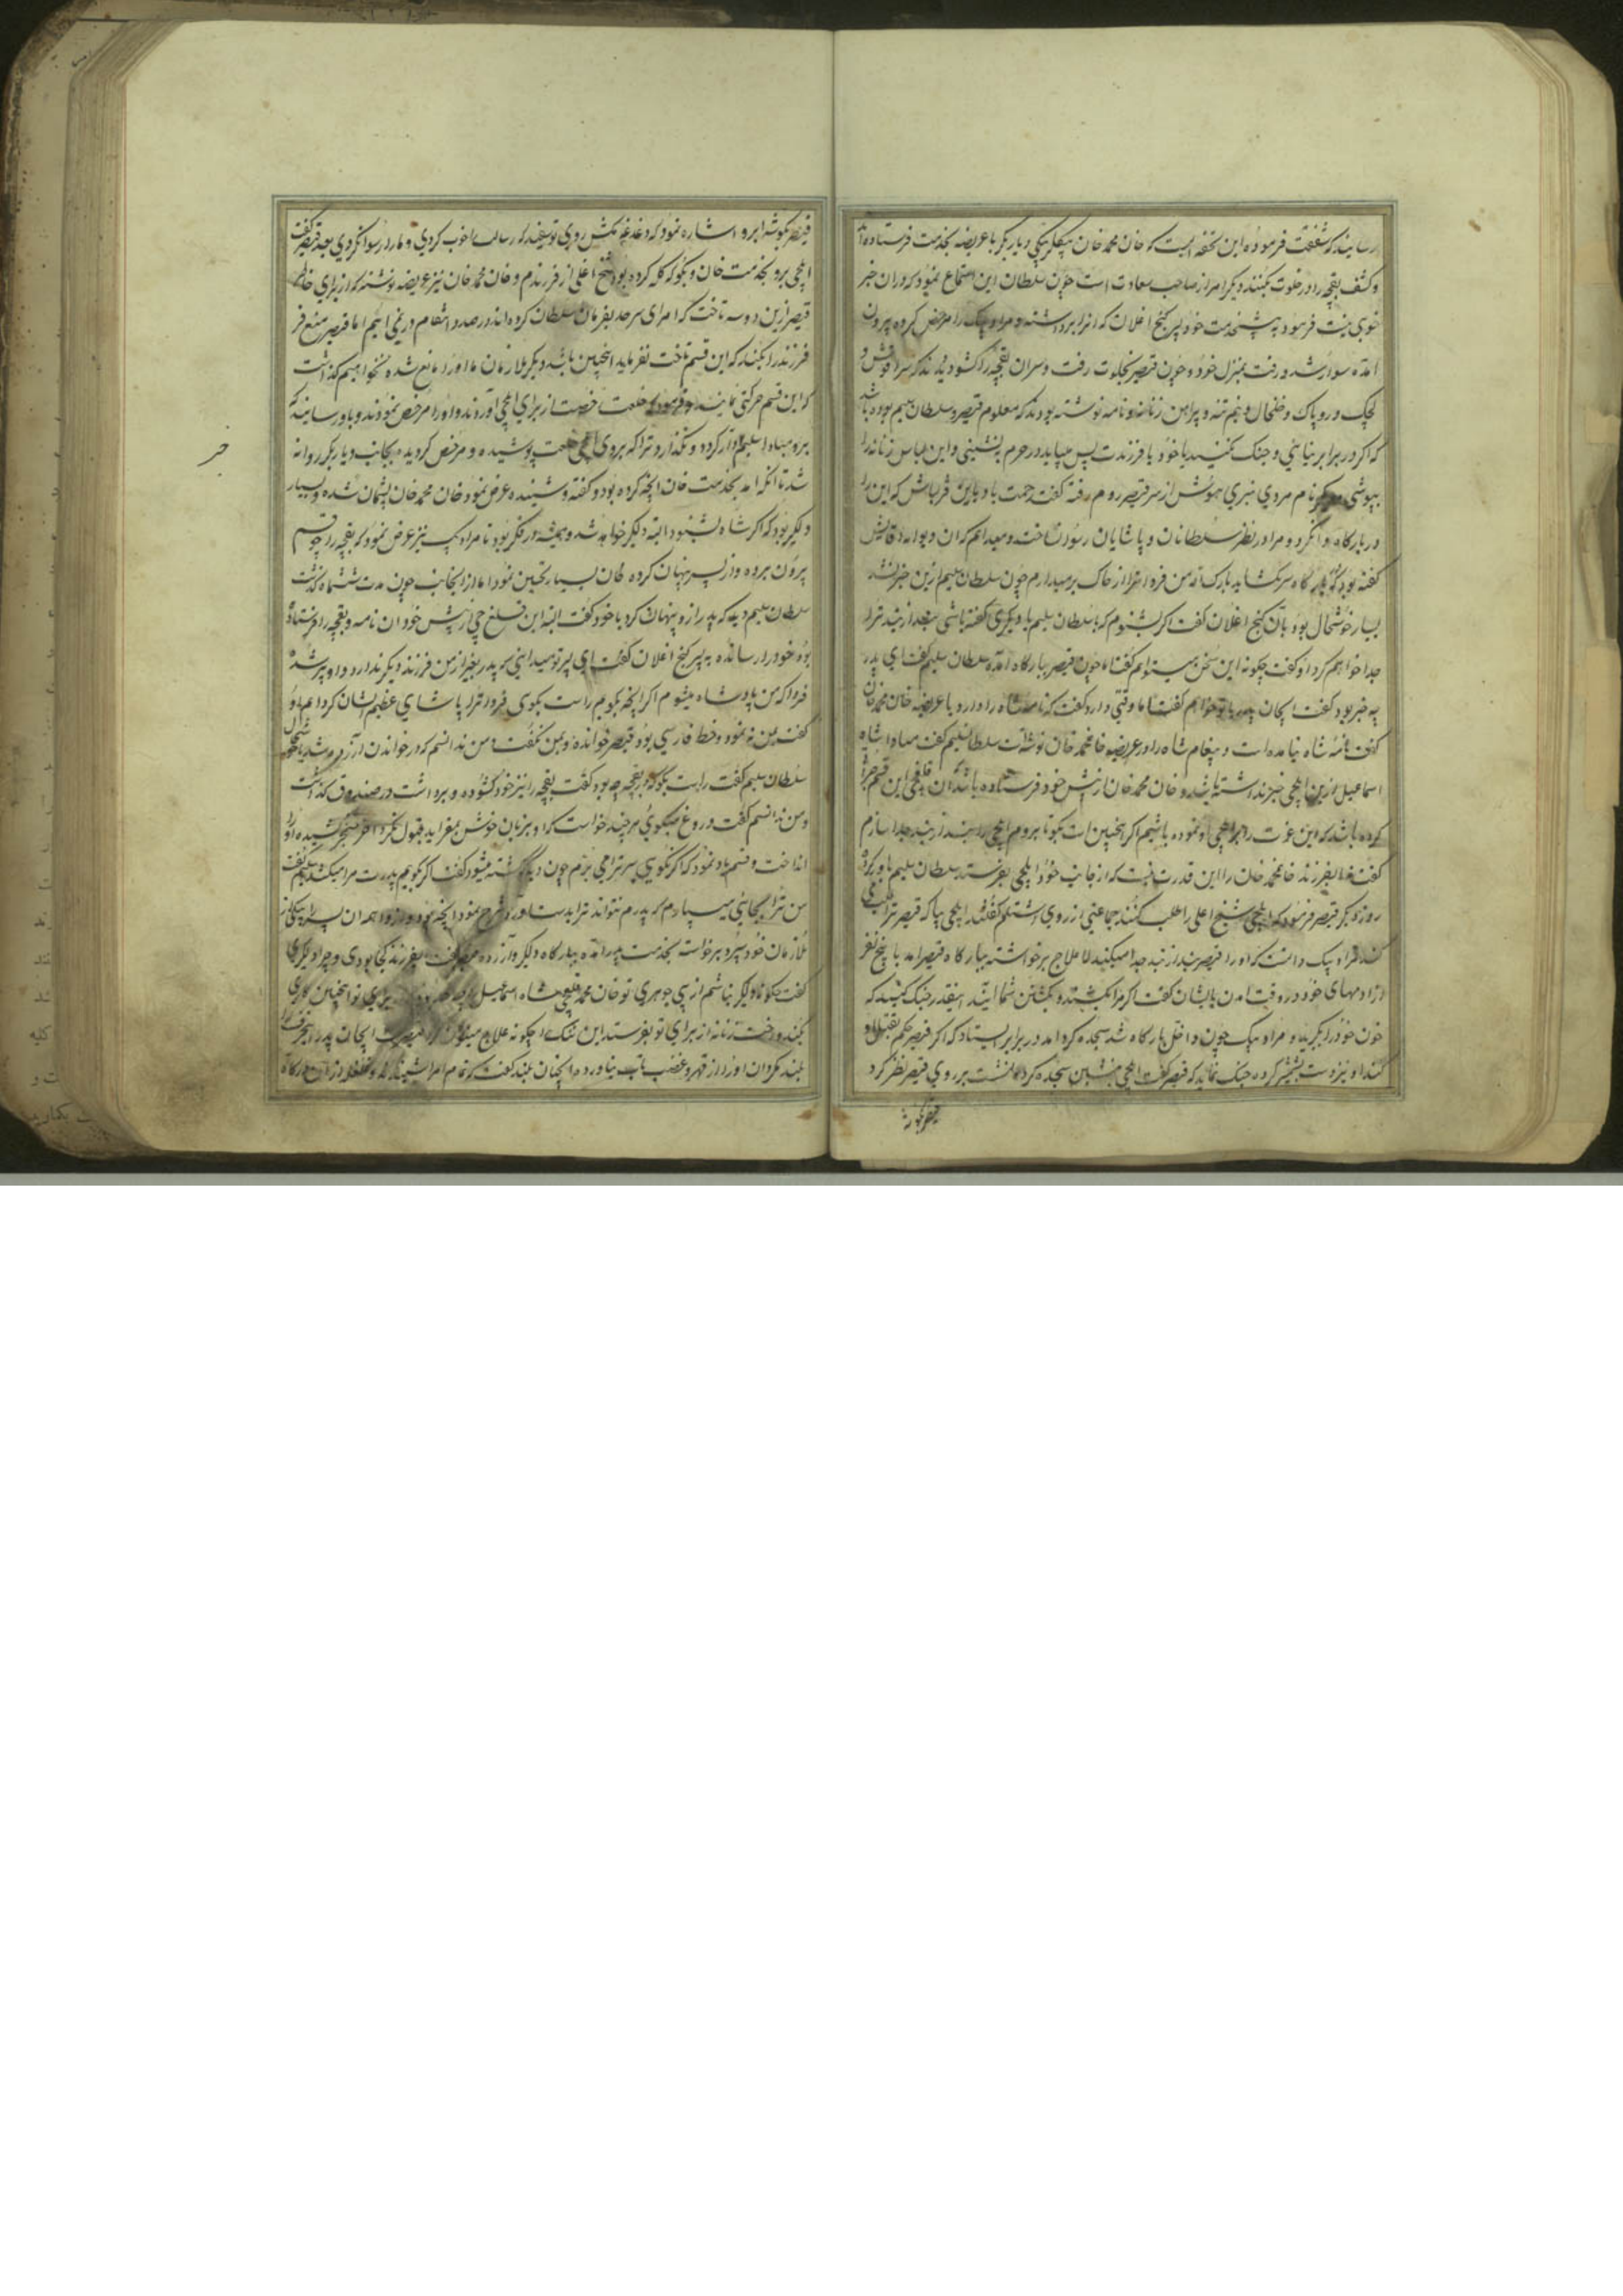 رسانیدند که شفقت فرموده این تحفه ایست که خان محمد خان بیکلربیکی دیاربکر با عریضه بخدمت فرستاده اند
و کشف بقچه را در خلوت بکنند دیگر امر از صاحب سعادت است چون سلطان این استماع نمود که در ان خبر
خوبی نیست فرمود به پیشخدمت خود پیر کنج اغلان که انرا برداشته و مراد بیک را مرخص کرده بیرون
آمده سوار شد و رفت بمنزل خود و چون قیصر بخلوت رفت و سران بقچه را کشودند دید که سراغوش و
لچک و روپاک و خلخال و نیم تنه و پیراهن زنانه و نامه نوشته بودند که معلوم قیصر و سلطان سلیم بوده باشد
که اگر در برابر نیائی و جنک نکنید یا خود یا فرزندت پس میباید در حرم بنشینی و این لباس زنانه را
بپوشی نام مردی نبری هوش از سر قیصر روم رفته گفت رحمت باد باین قزلباش که این را
در بارگاه وا نکرد و مرا در نظر سلطانان و پاشایان رسوا نساخت و میدانم که ان دیوانه
گفته بود که
بسیار خوشحال بود بان کنج اغلان گفت اگر بشنوم که با سلطان سلیم یا دیگری گفته باشی بند از بند ترا
جدا خواهم کرد او گفت چگونه این سخن میتوانم گفت اما چون قیصر ببارگاه آمد سلطان سلیم گفت ای پدر
چه خبر بود گفت ایجان پدر باتو خواهم گفت اما وقتی دارد گفت که نامه شاه را دارد یا عریضه خان محمد خان
گفت نامه شاه نیامده است و پیغام شاه را در عریضه خان محمد خان نوشته است سلطان سلیم گفت مبادا شاه
اسماعیل ازین ایلچی خبر نداشته باشد و خان محمد خان از پیش خود فرستاده باشد ان قلفچی این قسم
کرده باشد که این عزت را بایلچی او نموده باشیم اگر انچنین است بگو تا بروم ایلچی را بند از بند جدا سازم
گفت نه ای فرزند خان محمد خان را این قدرت نیست که از جانب خود ایلچی بفرستد سلطان سلیم باور کرد
روز دیگر قیصر فرمود که ایلچی شیخ اعلی را طلب کنند جماعتی از روی اشتلم گفتند ایلچی بیا که قیصر ترا طلب میکند
مراد بیک دانست که او را قیصر بند از بند جدا میکند لا علاج برخواسته ببارگاه قیصر آمد با پنج نفر
از ادمهای خود در وقت امدن بایشان گفت اگر مرا بکشتند و بکشتن شما آیند اینقدر جنک کنید که
خون خود را بگیرید و مراد بیک چون داخل بارگاه شد سجده کرد آمد در برابر ایستاد که اگر قیصر حکم بقتل او
کند او نیز دست بشمشیر کرده جنک نماید که قیصر گفت ایلچی بنشین سجده کرد اما نشست بر روی قیصر نظر کرد
قیصر بگوشه
قیصر بگوشه ابرو اشاره نمود که دغدغه مکش روی تو سفید که رسالت را خوب کردی و ما را رسوا نکردی بعد قیصر گفت
ایلچی برو بخدمت خان و بگو که گله کرده بود شیخ اعلی از فرزندم و خان محمد خان نیز عریضه نوشته که از برای خاطر
قیصر ازین دو سه تاخت که امرای سرحد بفرمان سلطان کرده اند در صدد انتقام در نمی ائیم اما قیصر منع
فرزند را بکند که این قسم تاخت نفرماید انچنین باشد دیگر ملازمان ما او را مانع شده نخواهیم گذاشت
که این قسم حرکتی نمایند و فرمود که خلعت رخصت از برای ایلچی آوردند و او را مرخص نمودند و باو رسانیدند که
برو مبادا سلیم وا گردد و نگذارد ترا که بروی ایلچی خلعت پوشیده و مرخص گردیده بجانب دیاربکر روانه
شد تا انکه آمد بخدمت خان انچه کرده بود و گفته و شنیده عرض نمود خان محمد خان پشیمان شده و بسیار
دلگیر بود که اگر شاه بشنود البته دلگیر خواهد شد و همیشه در فکر بود تا مراد بیک نیز عرض نمود که بقچه را چه قسم
بیرون برده و از پسر پنهان کرده خان بسیار تحسین نمود اما از انجانب چون مدت ششماه گذشت
سلطان سلیم دید که پدر راز و پنهان کرد با خود گفت البته این قلفچی از پیش خود ان نامه و بقچه را فرستاده
بود خود را رسانده به پیر کنج اغلان گفت ای پیر تو میدانی که پدر بغیر از من فرزند دیگر ندارد و او پیر شده
فردا که من پادشاه میشوم اگر انچه بگویم راست بگوی فردا ترا پاشای عظیم الشان گردانم او
گفت بمن نه نمود و خط فارسی بود قیصر خوانده و بمن نگفت و من ندانستم که در خواندن آزرده شد یا خوشحال
سلطان سلیم گفت راست بگو که در بقچه چه بود گفت بقچه را نیز خود کشوده و برداشت در صندوق گذاشت
و من ندانستم گفت دروغ میگوئی هرچند خواست که او بزبان خوش بفرماید قبول نکرد آخر خنجر کشیده او را
انداخت و قسم یاد نمود که اگر نگوئی سر ترا می برم چون دید کشته میشود گفت اگر بگویم پدرت مرا میکشد سلیم گفت
من ترا بجائی میسپارم که پدرم نتواند ترا بدست آورد شرح نمود انچه بود
ملازمان خود سپرد برخواسته بخدمت پدر آمده ببارگاه دلگیر و آزرده قیصر گفت ای فرزند کجا بودی و چرا دلگیری
گفت چگونه دلگیر نباشم از بی جوهری تو خان محمد قلفچی شاه اسماعیل برای تو انچنین کاری
بکند و رخت زنانه از برای تو بفرستد این ننک را چگونه علاج میتوان کرد قیصر گفت ایجان پدر این حرف را
بلند مگردان او را از قهر و غضب تاب نیاورده انچنان بلند گفت که تمام امرا شنیدند
خبر